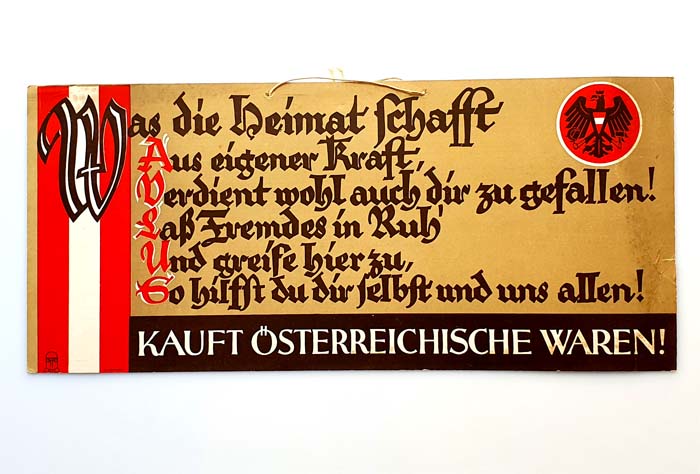 Was die Heimat schafft
Aus eigener Kraft,
Verdient wohl auch dir zu gefallen!
Laß Fremdes in Ruh'
Und greife hier zu,
So hilfst du dir selbst und uns allen!
KAUFT ÖSTERREICHISCHE WAREN!